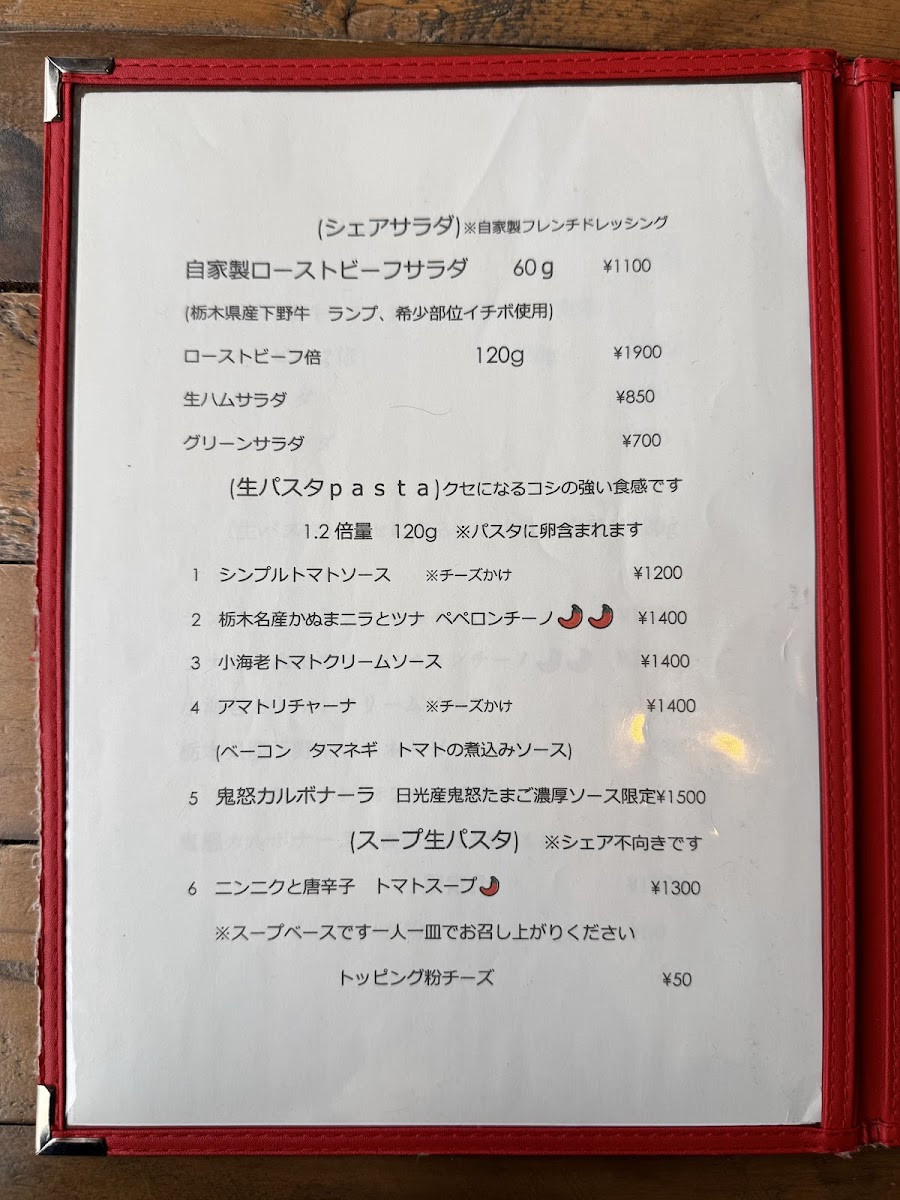 (シェアサラダ)※自家製フレンチドレッシング
自家製ローストビーフサラダ 60g ¥1100
(栃木県産下野牛 ランプ、希少部位イチボ使用)
ローストビーフ倍 120g ¥1900
生ハムサラダ ¥850
グリーンサラダ ¥700
(生パスタpasta)クセになるコシの強い食感です
1.2倍量 120g ※パスタに卵含まれます
1 シンプルトマトソース ※チーズかけ ¥1200
2 栃木名産かぬまニラとツナ ペペロンチーノ ¥1400
3 小海老トマトクリームソース ¥1400
4 アマトリチャーナ ※チーズかけ ¥1400
(ベーコン タマネギ トマトの煮込みソース)
5 鬼怒カルボナーラ 日光産鬼怒たまご濃厚ソース限定¥1500
(スープ生パスタ) ※シェア不向きです
6 ニンニクと唐辛子 トマトスープ ¥1300
※スープベースです一人一皿でお召し上がりください
トッピング粉チーズ ¥50